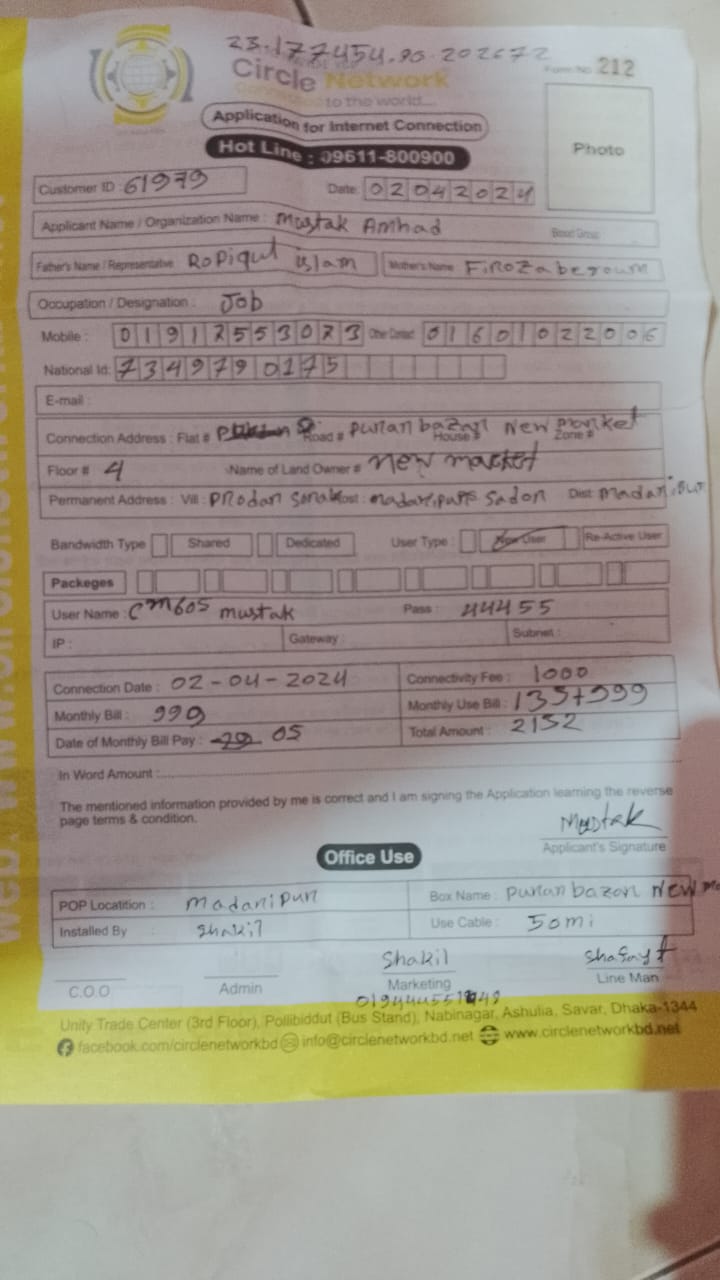 23.177454.90.202672
Form No 212
Circle Network
Connected to the world...
Application for Internet Connection
Hot Line : 09611-800900
Photo
Customer ID : 61979
Date: 02042024
Applicant Name / Organization Name : Mustak Amhad
Blood Group
Father's Name / Representative Ropiqul islam
Mother's Name Firozabegoum
Occupation / Designation : Job
Mobile : Other Contact 01601022006
National Id: 7349790175
E-mail :
Connection Address : Flat # Road # puran bazar House # New Market Zone #
Floor # 4 Name of Land Owner # new market
Permanent Address : Vill : Prodan Post : madaripur Sador Dist: Madaripur
Bandwidth Type Shared Dedicated User Type : New User Re-Active User
Packeges
User Name : cm605 mustak Pass : 44455
IP : Gateway : Subnet :
Connection Date : 02-04-2024 Connectivity Fee : 1000
Monthly Bill : 999 Monthly Use Bill : 999
Date of Monthly Bill Pay : 05 Total Amount : 2152
In Word Amount :
The mentioned information provided by me is correct and I am signing the Application learning the reverse
page terms & condition.
Mustak
Applicant's Signature
Office Use
POP Locatition : Madaripur Box Name : Puran bazar New
Installed By : Shakil Use Cable : 50mi
Shakil
C.O.O Admin Marketing Line Man
Unity Trade Center (3rd Floor), Pollibiddut (Bus Stand), Nabinagar, Ashulia, Savar, Dhaka-1344
facebook.com/circlenetworkbd info@circlenetworkbd.net www.circlenetworkbd.net